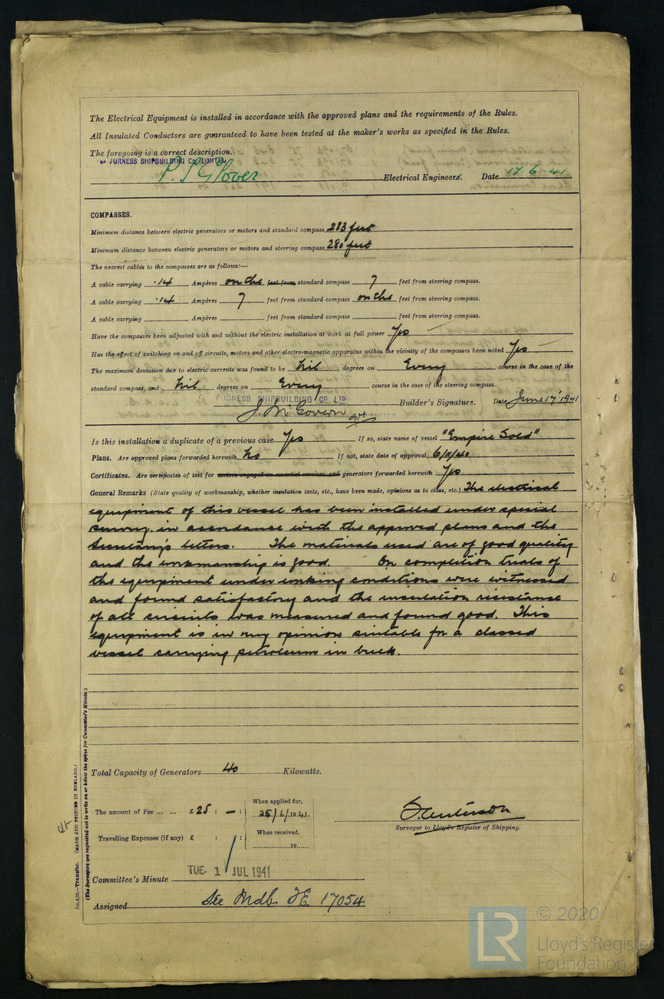 The Electrical Equipment is installed in accordance with the approved plans and the requirements of the Rules.
All Insulated Conductors are guaranteed to have been tested at the maker's works as specified in the Rules.
The foregoing is a correct description.
FURNESS SHIPBUILDING Co LIMITED
P. S Glover Electrical Engineers. Date 17.6.41
COMPASSES.
Minimum distance between electric generators or motors and standard compass 283 feet
Minimum distance between electric generators or motors and steering compass 280 feet
The nearest cables to the compasses are as follows:—
A cable carrying .14 Ampères on the feet from standard compass 7 feet from steering compass.
A cable carrying .14 Ampères 7 feet from standard compass on the feet from steering compass.
A cable carrying Ampères feet from standard compass feet from steering compass.
Have the compasses been adjusted with and without the electric installation at work at full power Yes
Has the effect of switching on and off circuits, motors and other electro-magnetic apparatus within the vicinity of the compasses been noted Yes
The maximum deviation due to electric currents was found to be Nil degrees on Every course in the case of the
standard compass, and Nil degrees on Every course in the case of the steering compass.
FURNESS SHIPBUILDING CO. LTD
J. McGovern Builder's Signature. Date June 17 1941
Is this installation a duplicate of a previous case Yes If so, state name of vessel "Empire Gold"
Plans. Are approved plans forwarded herewith No If not, state date of approval 6/11/40
Certificates. Are certificates of test for motors engaged on essential services and generators forwarded herewith Yes
General Remarks (State quality of workmanship, whether insulation tests, etc., have been made, opinions as to class, etc.) The electrical
equipment of this vessel has been installed under special
survey, in accordance with the approved plans and the
Secretary's letters. The materials used are of good quality
and the workmanship is good. On completion trials of
the equipment under working conditions were witnessed
and found satisfactory and the insulation resistance
of all circuits was measured and found good. This
equipment is in my opinion suitable for a classed
vessel carrying petroleum in bulk.
Total Capacity of Generators 40 Kilowatts.
The amount of Fee ... ... £ 25 : — : When applied for, 25/6/1941.
Travelling Expenses (if any) £ : : When received, 19
Surveyor to Lloyd's Register of Shipping.
Committee's Minute TUE. 1 JUL 1941
Assigned See Mdb. FE 17054
(MADE AND PRINTED IN ENGLAND.)
(The Surveyors are requested not to write on or below the space for Committee's Minute.)
© 2020
LR
Lloyd's Register
Foundation